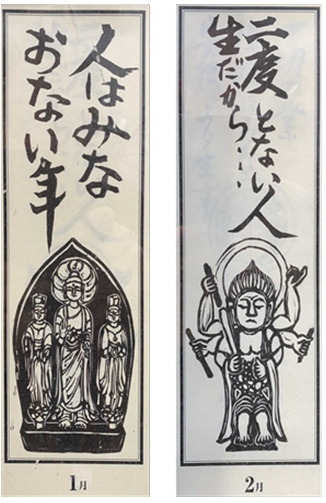 人はみな
おない年
1月
二度とない人
生だから・・・
2月